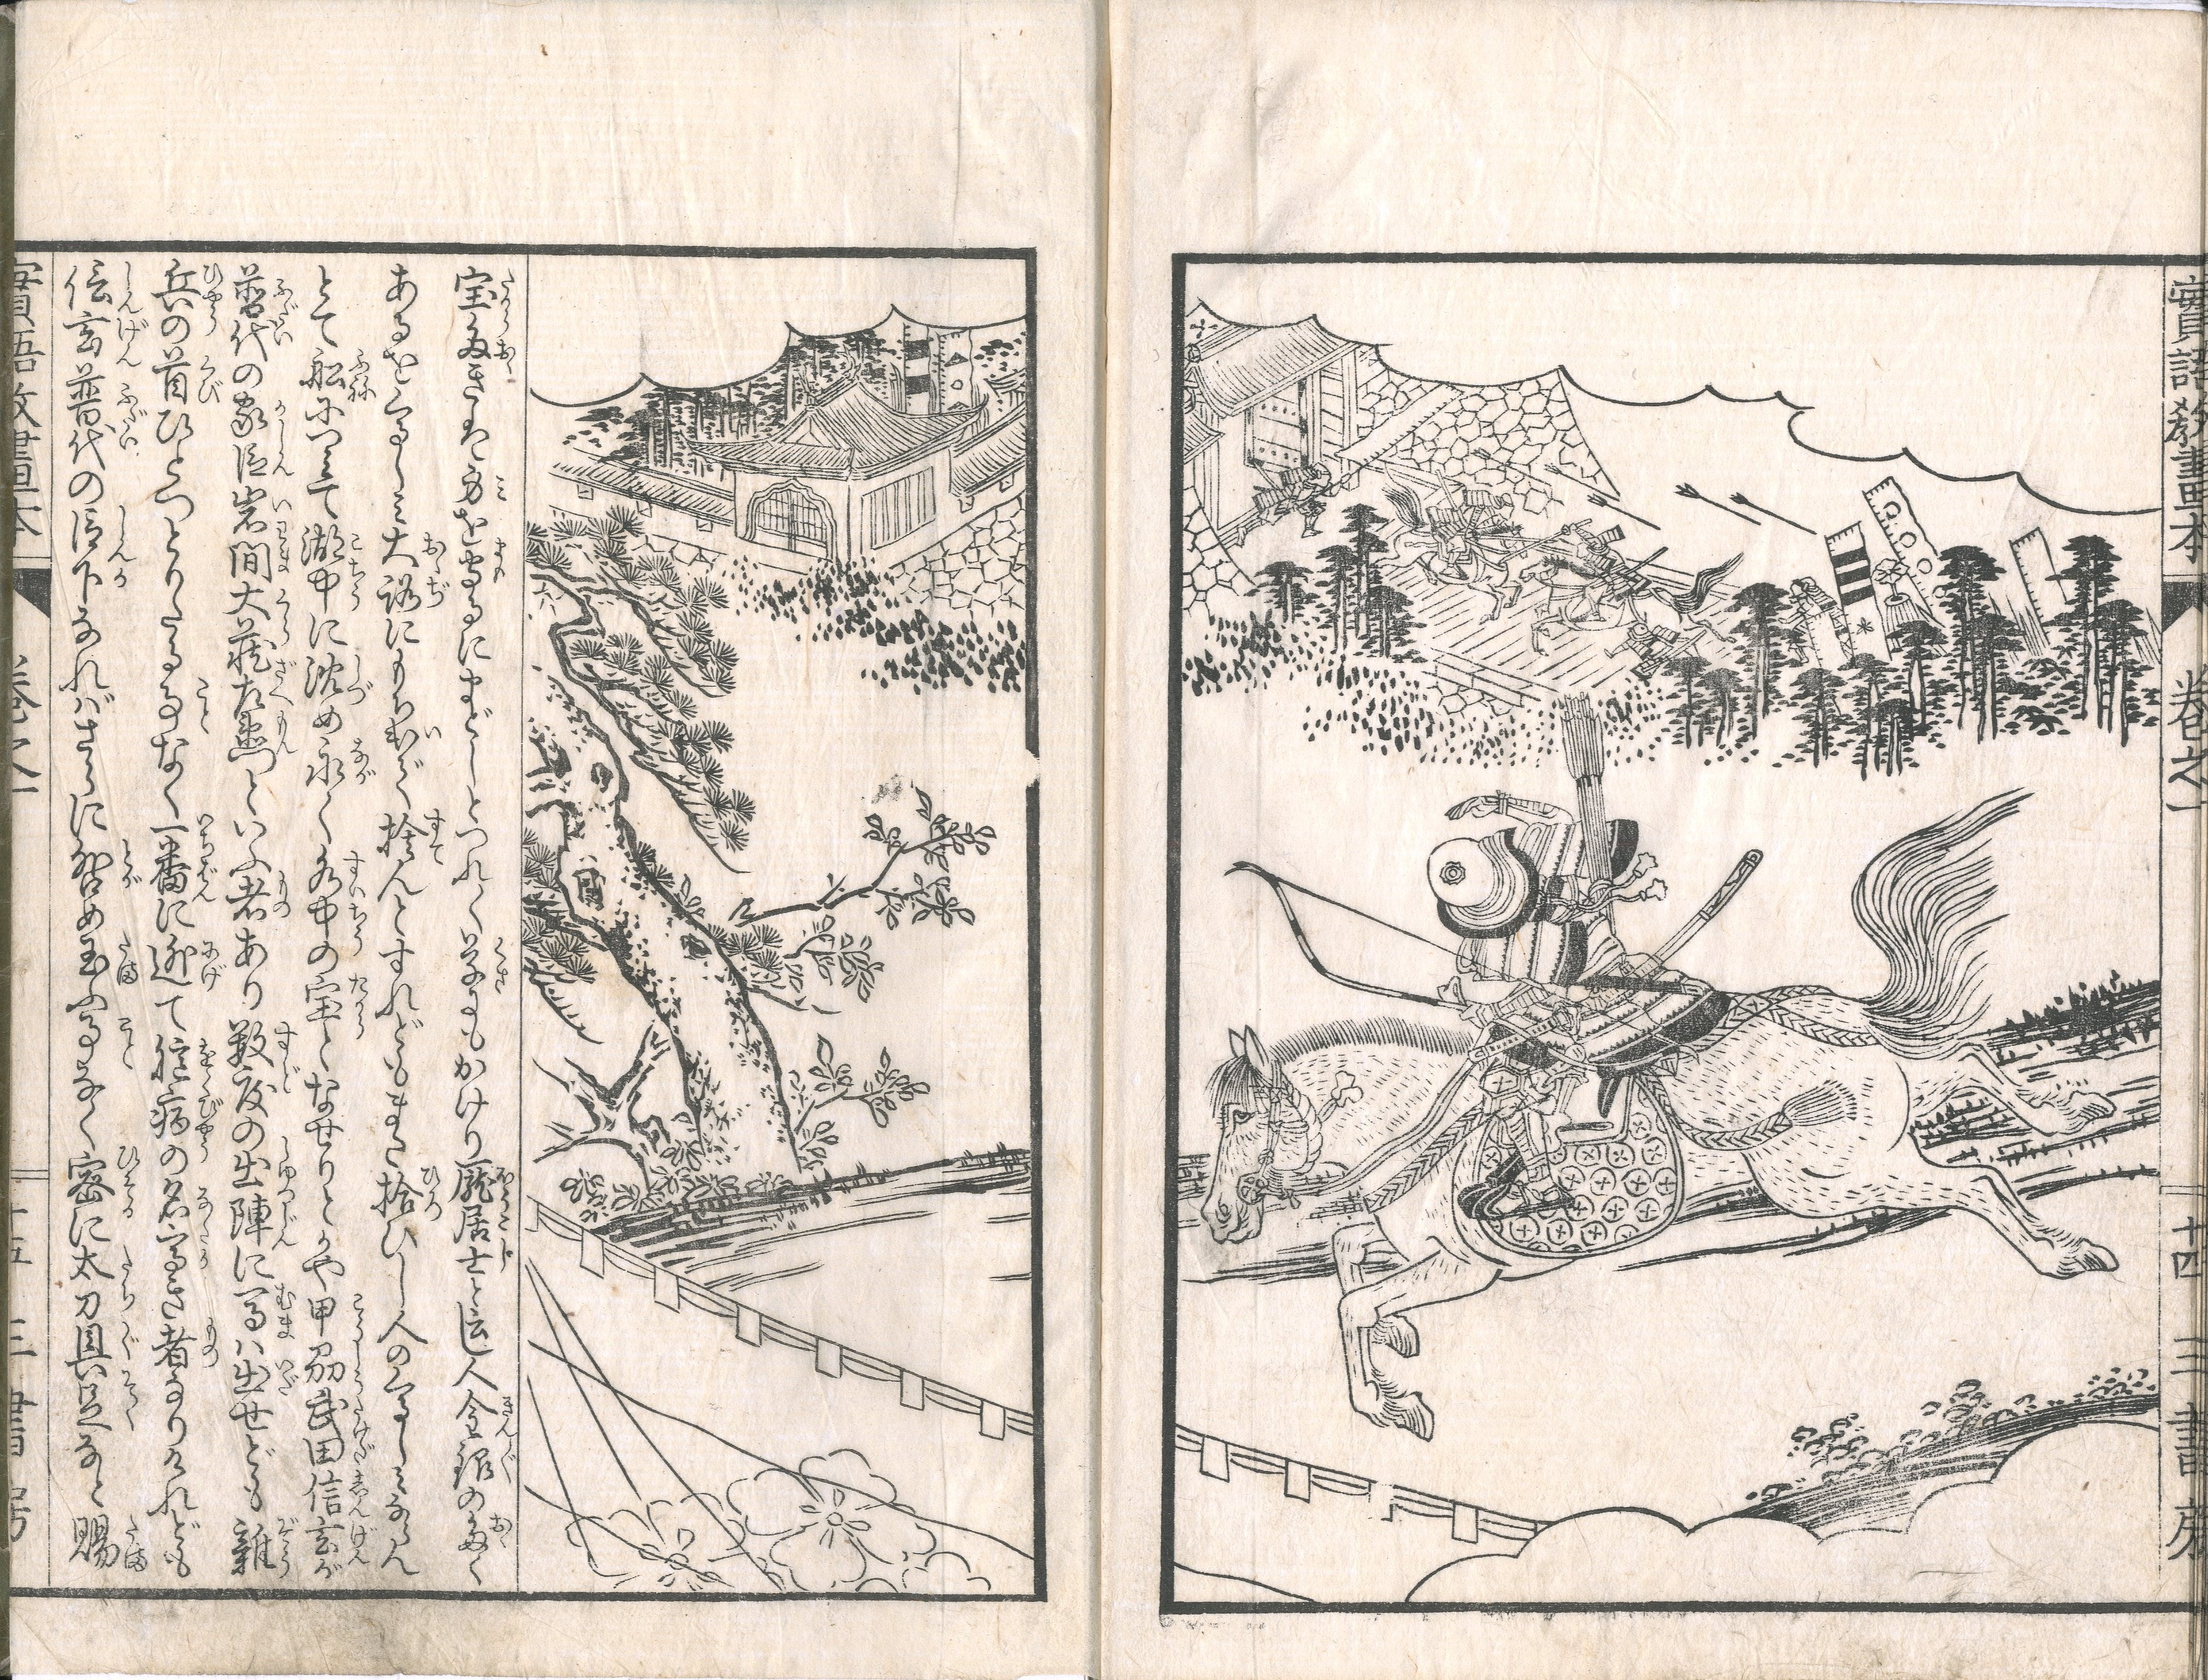 實語教畫本
卷之一
十四
三書房
宝多きは身を守るにまどしとつれ〴〵草にもかけり龐居士と云し人金銀の多く
あるをくるしみ大路にもち出て捨んとすれどもまた拾ひし人のくるしみならん
とて船につミて湖中に沈め永く水中の宝となせりとかや甲刕武田信玄が
普代の家臣岩間大蔵左衛門といふ者あり数度の出陣に馬は出せども雑
兵の首ひとつとりたる事なく一番に迯て臆病の名高き者なりけれども
信玄普代の臣下なればさらに咎め玉ふ事なく密に太刀具足など賜
實語教畫本
卷之一
十五
三書房